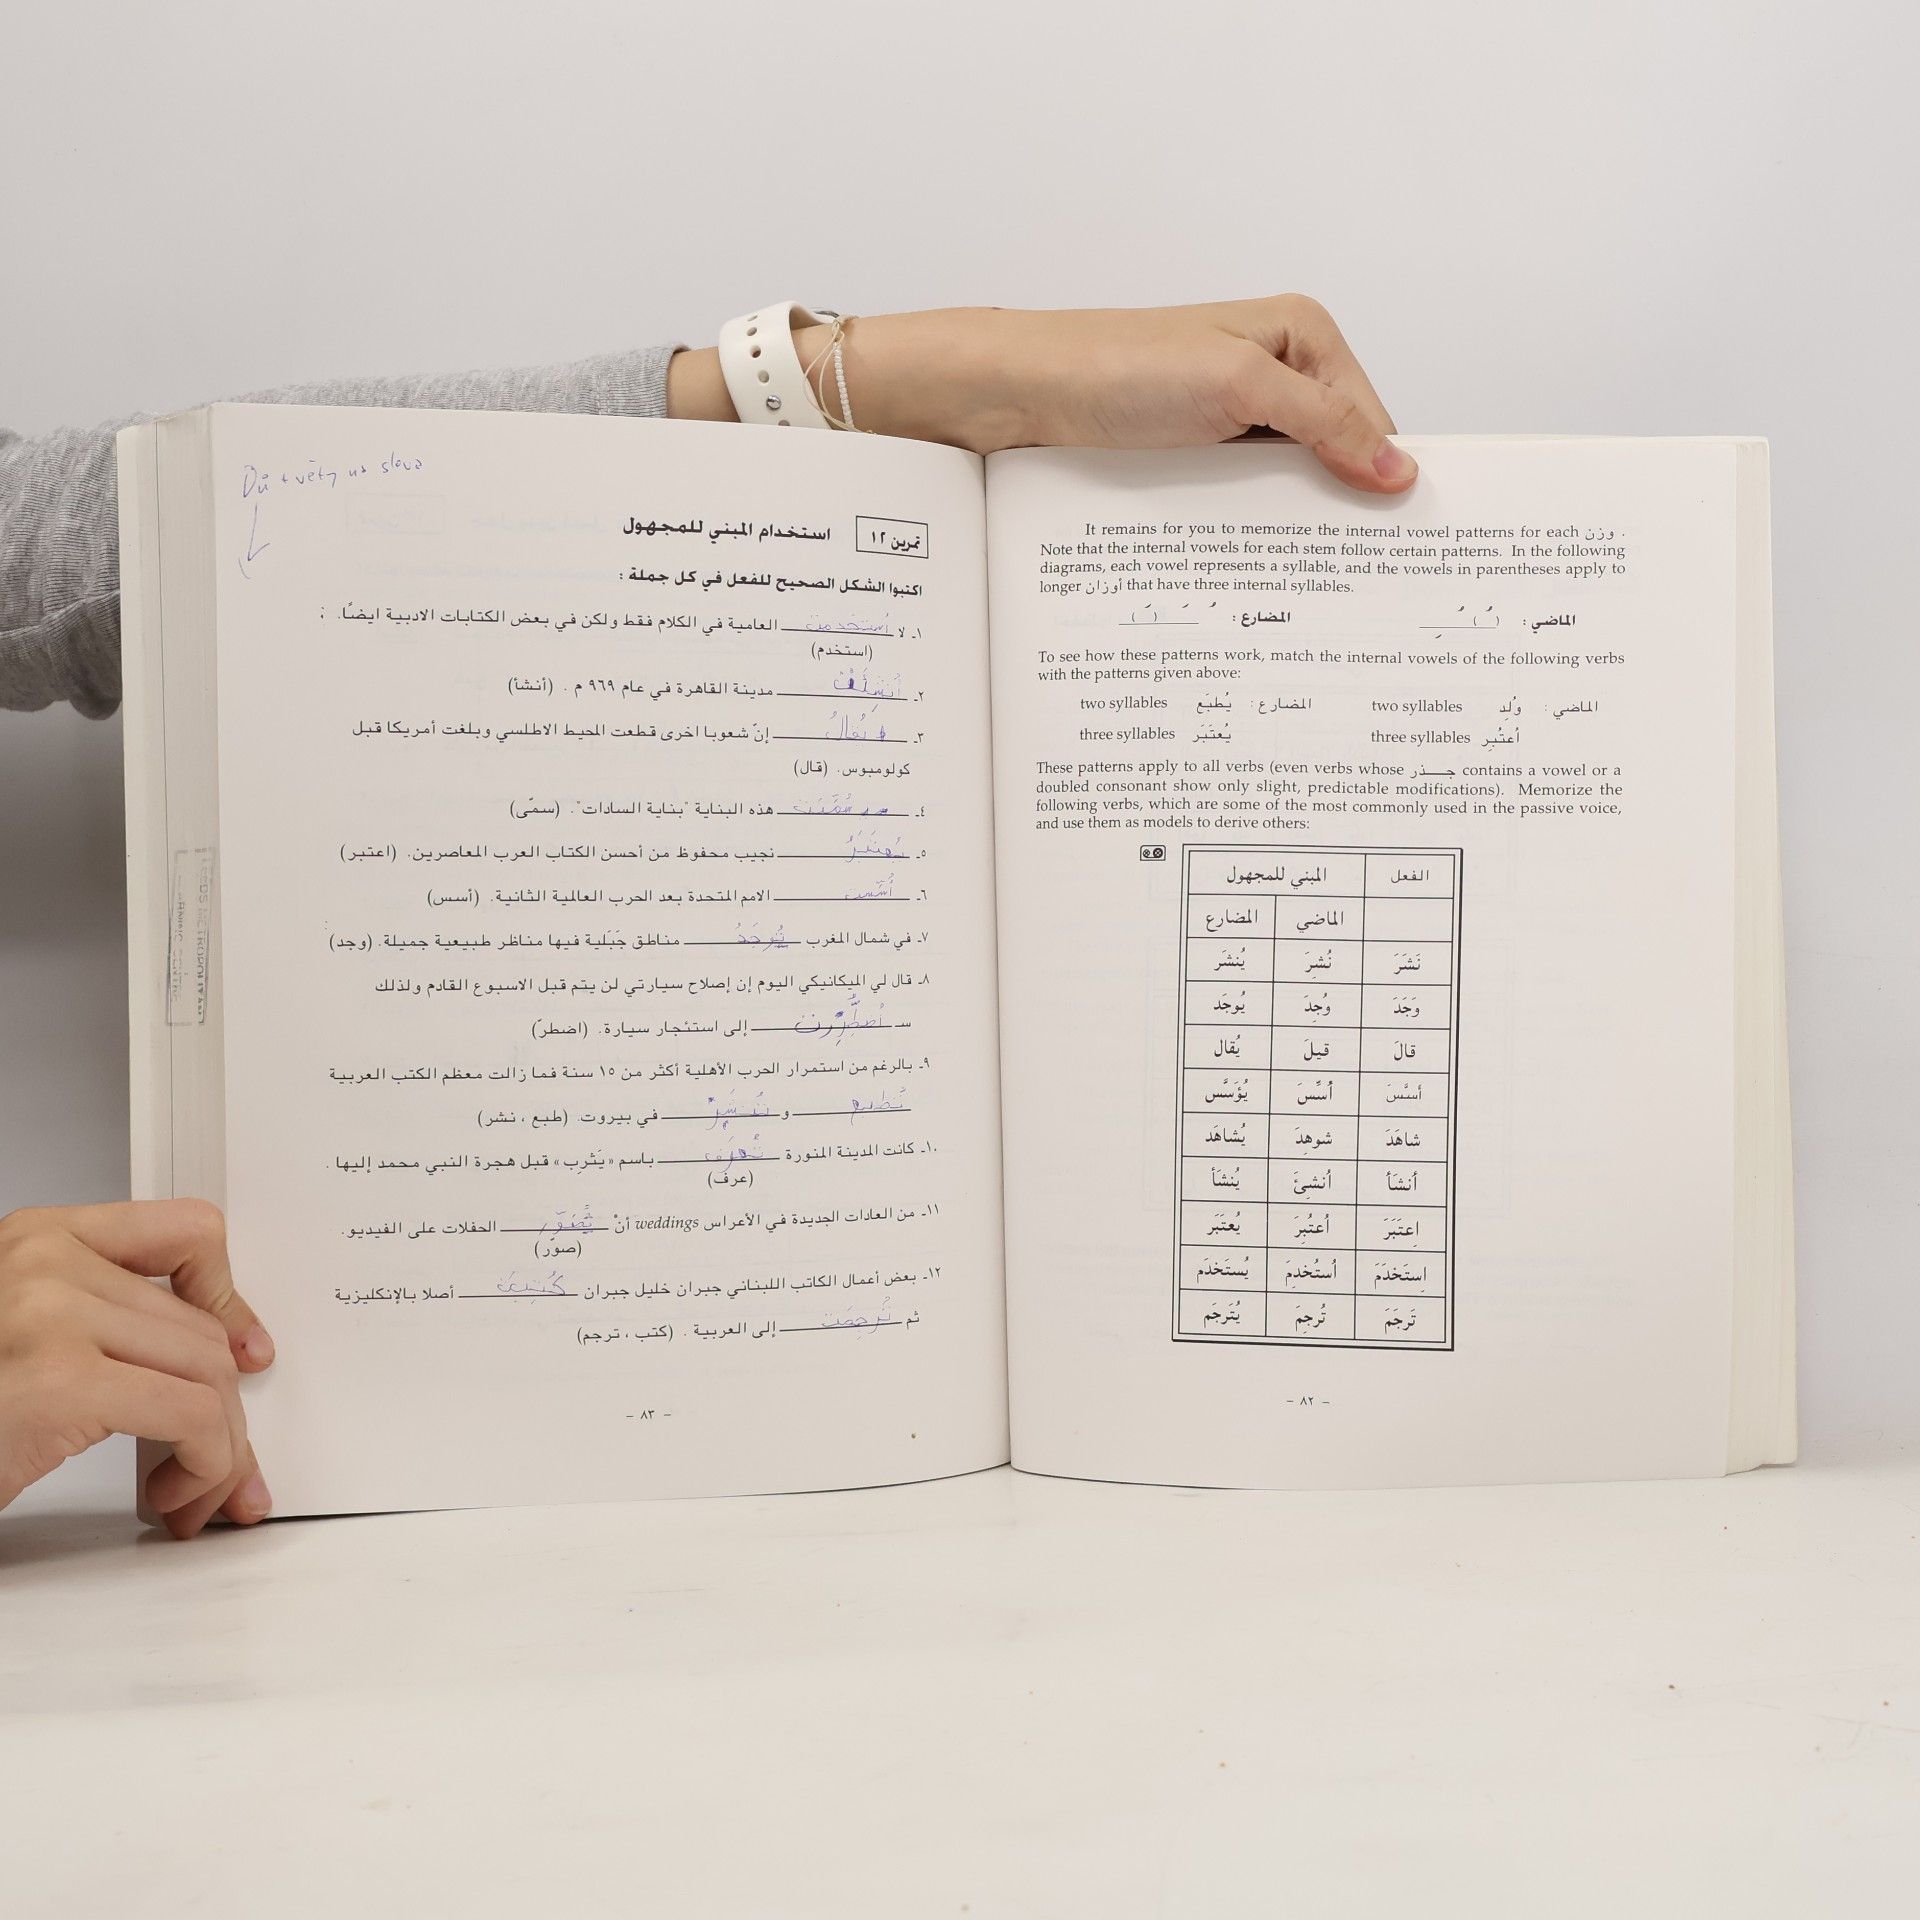 It remains for you to memorize the internal vowel patterns for each وزن .
Note that the internal vowels for each stem follow certain patterns. In the following
diagrams, each vowel represents a syllable, and the vowels in parentheses apply to
longer أوزان that have three internal syllables.
الماضي : ُ (ُ) ِ المضارع : ُ َ (َ)
To see how these patterns work, match the internal vowels of the following verbs
with the patterns given above:
الماضي : وُلِد two syllables المضارع : يُطبَع two syllables
أعتُبِر three syllables يُعتَبَر three syllables
These patterns apply to all verbs (even verbs whose جـــذر contains a vowel or a
doubled consonant show only slight, predictable modifications). Memorize the
following verbs, which are some of the most commonly used in the passive voice,
and use them as models to derive others:
الفعل المبني للمجهول
الماضي المضارع
نَشَرَ نُشِرَ يُنشَر
وَجَدَ وُجِدَ يُوجَد
قالَ قيلَ يُقال
أسَّسَ أُسِّسَ يُؤَسَّس
شاهَدَ شوهِدَ يُشاهَد
أنشَأ أُنشِئَ يُنشَأ
اِعتَبَرَ اُعتُبِرَ يُعتَبَر
اِستَخدَمَ اُستُخدِمَ يُستَخدَم
تَرجَمَ تُرجِمَ يُتَرجَم
- ٨٢ -
Dú + věty na slova
تمرين ١٢ استخدام المبني للمجهول
اكتبوا الشكل الصحيح للفعل في كل جملة :
١ـ لا أُستخدمت العامية في الكلام فقط ولكن في بعض الكتابات الادبية ايضًا.
(استخدم)
٢ـ أُنشِئَت مدينة القاهرة في عام ٩٦٩ م . (أنشأ)
٣ـ يُقالُ إنّ شعوبا اخرى قطعت المحيط الاطلسي وبلغت أمريكا قبل
كولومبوس. (قال)
٤ـ سُمِّيَت هذه البناية "بناية السادات". (سمّى)
٥ـ يُعتَبَرُ نجيب محفوظ من أحسن الكتاب العرب المعاصرين. (اعتبر)
٦ـ أُسِّست الامم المتحدة بعد الحرب العالمية الثانية. (أسس)
٧ـ في شمال المغرب تُوجَدُ مناطق جَبَلية فيها مناظر طبيعية جميلة. (وجد)
٨ـ قال لي الميكانيكي اليوم إن إصلاح سيارتي لن يتم قبل الاسبوع القادم ولذلك
سـ إلى استئجار سيارة. (اضطرّ)
٩ـ بالرغم من استمرار الحرب الأهلية أكثر من ١٥ سنة فما زالت معظم الكتب العربية
تُطبع و تُنشَر في بيروت. (طبع ، نشر)
١٠ـ كانت المدينة المنورة تُعرَف باسم «يَثرِب» قبل هجرة النبي محمد إليها .
(عرف)
١١ـ من العادات الجديدة في الأعراس weddings أنْ تُصَوّر الحفلات على الفيديو.
(صوّر)
١٢ـ بعض أعمال الكاتب اللبناني جبران خليل جبران كُتِبَت أصلا بالإنكليزية
ثم تُرجِمَت إلى العربية . (كتب ، ترجم)
- ٨٣ -